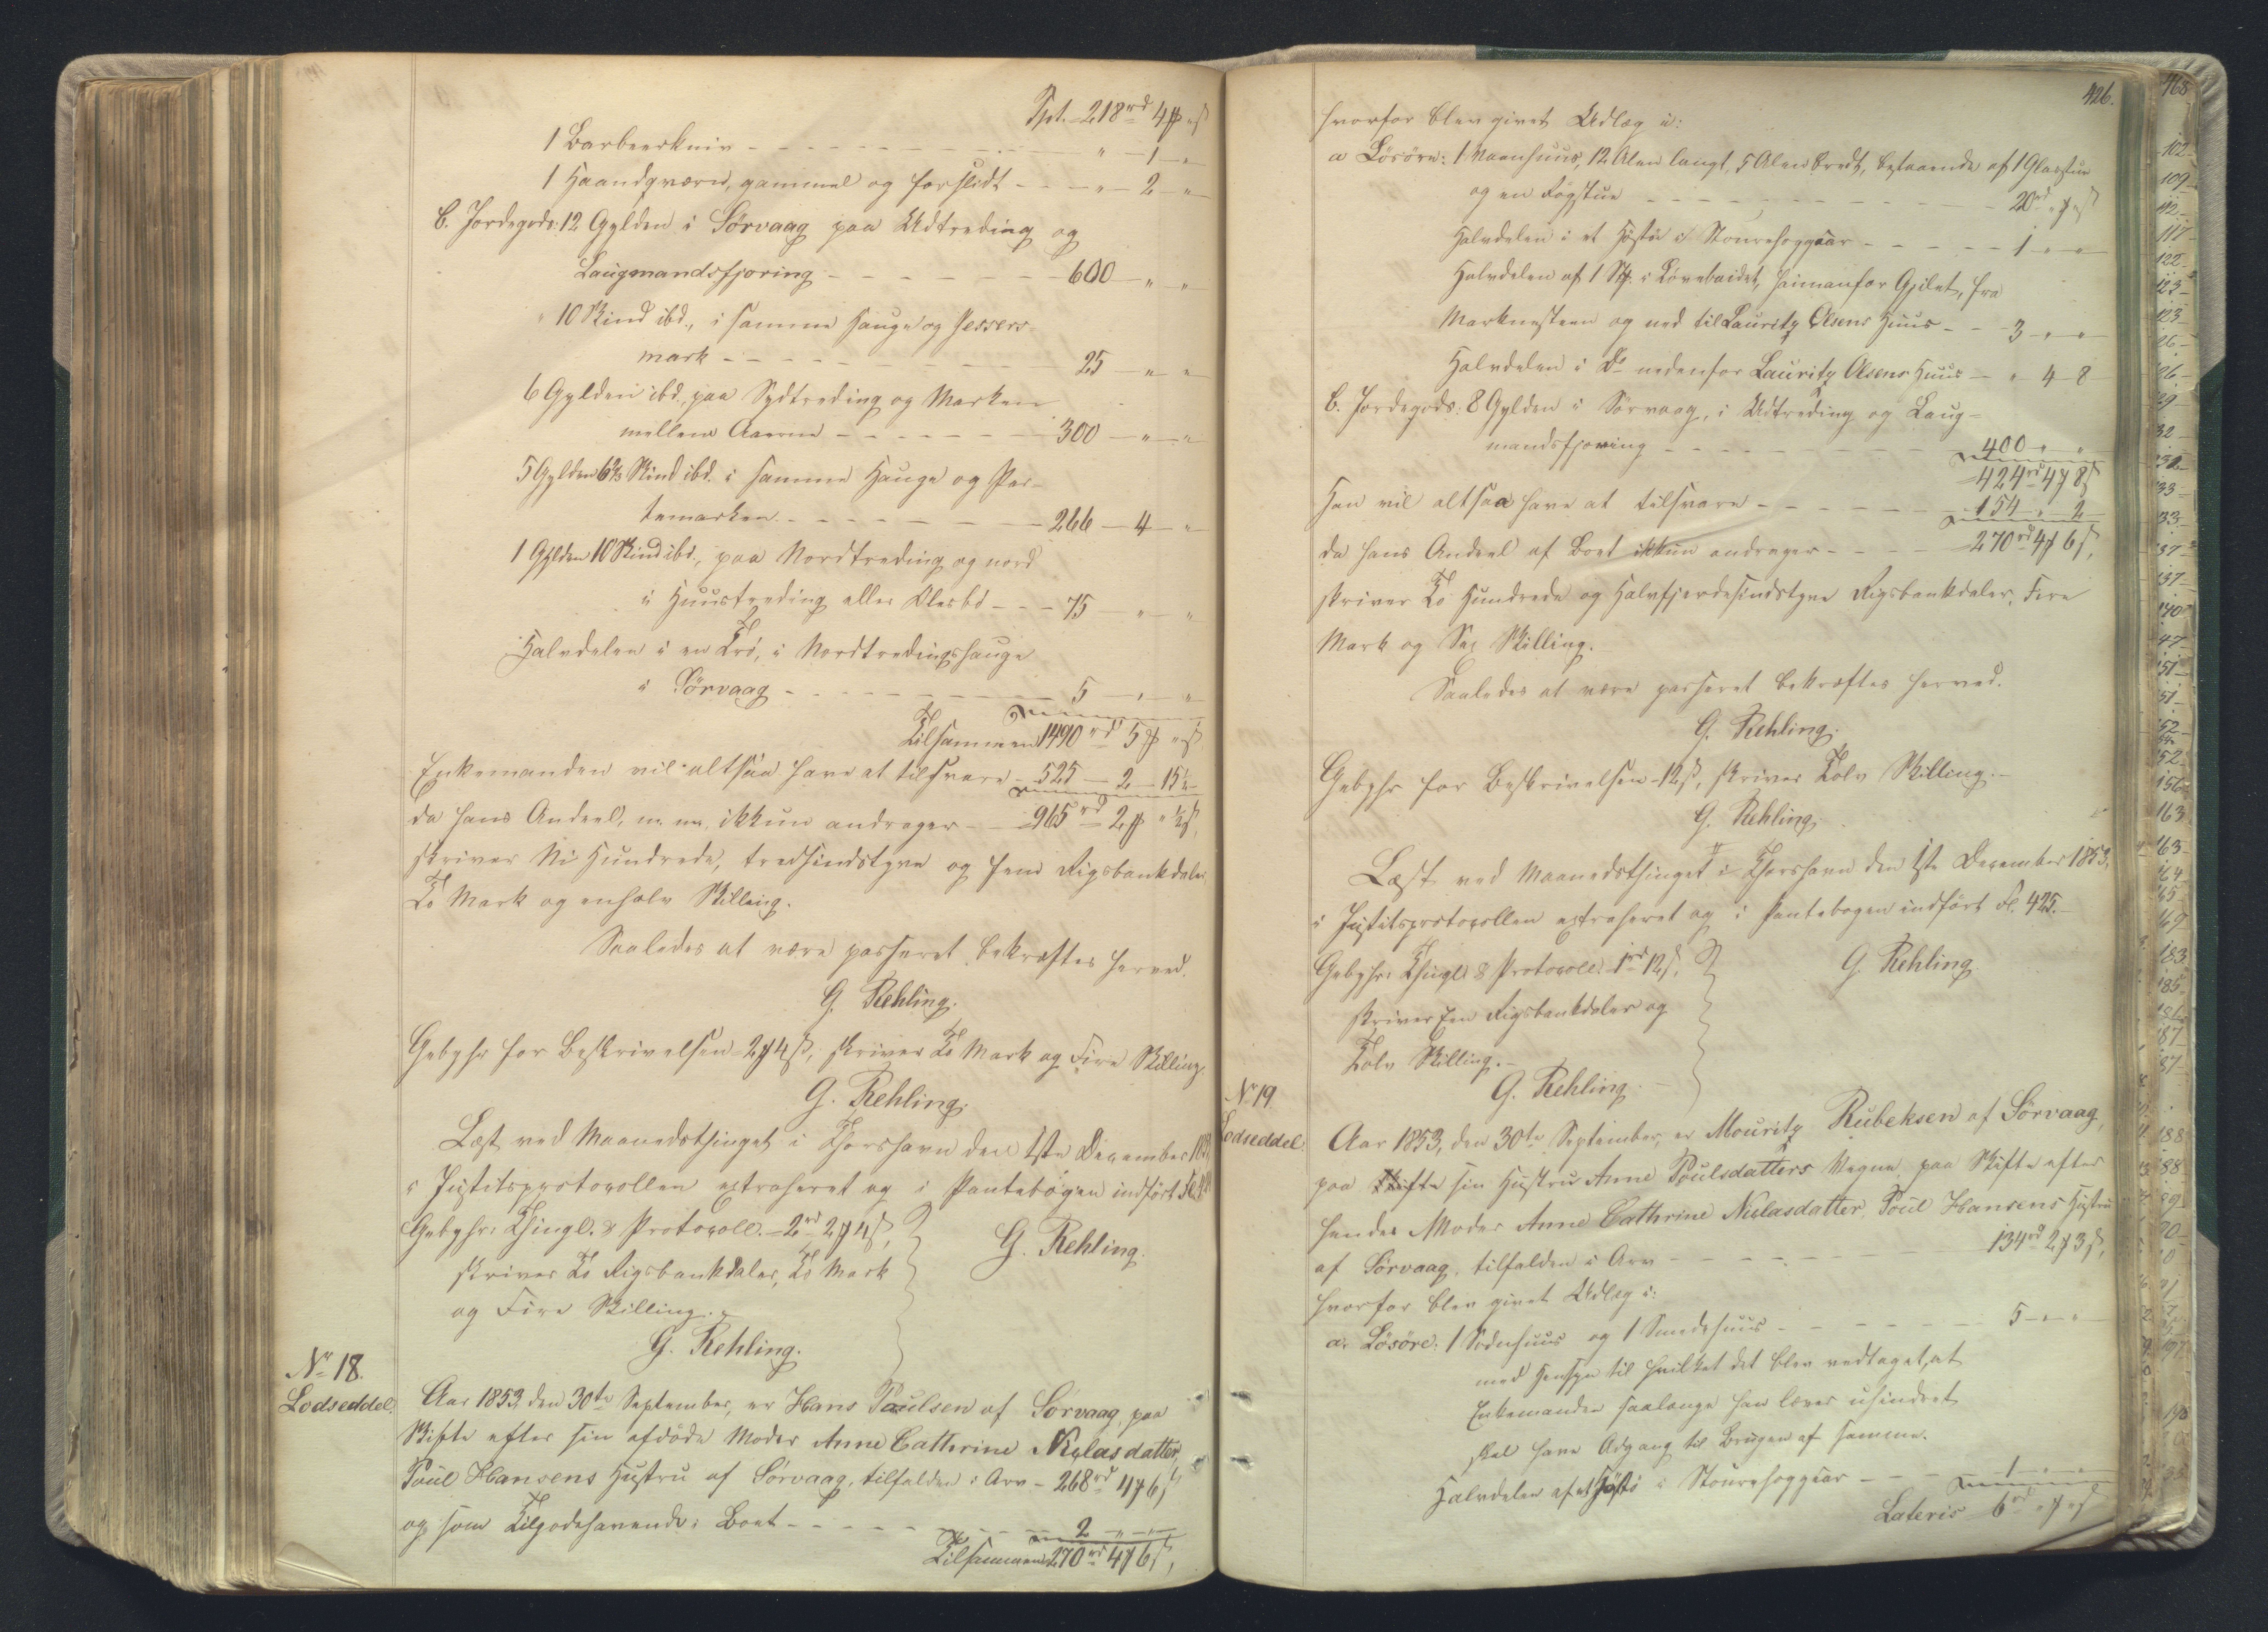 Tpt. 218 rd 4 ₰ " ß
1 Barbeerkniv - - - " - 1 - "
1 Haandqværn, gammel og forslidt - - - " - 2 - "
b. Jordegods: 12 Gylden i Sørvaag paa Udtreding og
Laugmandsfjøring - - - 600 - " - "
10 Skind ibd., i samme Hauge og Jessers
mark - - - 25 - " - "
6 Gylden ibd., paa Sydtreding og Marken
mellem Aaerne - - - 300 - " - "
5 Gylden 6⅔ Skind ibd. i samme Hauge og
temarken - - - 266 - 4 - "
1 Gylden 10 Skind ibd., paa Nordtreding og nord
i Huustreding eller - - - 75 - " - "
Halvdelen i en Krø, i Nordtredingshauge
i Sørvaag - - - 5 - " - "
Tilsammen 1490 rd 5 ₰ " ß
Enkemanden vil altsaa have at tilsvare - 525 - 2 - 15½
da hans Andeel, m. m. ikkun andrager - - 965 rd 2 ₰ " ½ ß,
skriver Ni Hundrede, tredsindstyve og Fem Rigsbankdaler,
To Mark og enhalv Skilling.
Saaledes at være passeret bekræftes herved.
G. Rehling.
Gebyhr for Beskrivelsen 2 ₰ 4 ß, skriver To Mark og Fire Skilling.
G. Rehling.
Læst ved Maanedsthinget i Thorshavn den 1ste December
i Justitsprotocollen extraheret og i Pantebogen indført
Gebyhr: Thingl. & Protocoll. 2 rd 2 ₰ 4 ß,
skriver To Rigsbankdaler, To Mark
og Fire Skilling.
G. Rehling.
G. Rehling.
No 18.
Lodseddel.
Aar 1853, den 30te September, er Hans Poulsen af Sørvaag, paa
Skifte efter sin afdøde Moder Anne Cathrine Niclasdatter,
Poul Hansens Hustru af Sørvaag, tilfalden i Arv - 268 rd 4 ₰ 6 ß
og som Tilgodehavende i Boet - - - 2 - " - "
Tilsammen 270 rd 4 ₰ 6 ß,
426.
hvorfor blev givet Udlæg i:
a Løsøre: 1 Vaanhuus, 12 Alen langt, 5 Alen bredt, bestaaende af 1 Glarstue
og en Røgstue - - - 20 rd " ₰ " ß
Halvdelen i et Høstø i - - - 1 - " - "
Halvdelen af 1 Stk. i fra
Marknesteen og ned til Lauritz Olsens Huus - - 3 - " - "
Halvdelen i Do nedenfor Lauritz Olsens Huus - " - 4 - 8
b. Jordegods: 8 Gylden i Sørvaag, i Udtreding og Laug-
mandsfjøring - - - 400 - " - "
424 rd 4 ₰ 8 ß
Han vil altsaa have at tilsvare - - - 154 - " - 2
da hans Andeel af Boet ikkun andrager - - - 270 rd 4 ₰ 6 ß,
skriver To Hundrede og Halvfjerdesindstyve Rigsbankdaler, Fire
Mark og Sex Skilling.
Saaledes at være passeret bekræftes herved.
G. Rehling.
Gebyhr for Beskrivelsen 12 ß, skriver Tolv Skilling.
G. Rehling.
Læst ved Maanedsthinget i Thorshavn den 1ste December 1853,
i Justitsprotocollen extraheret og i Pantebogen indført Fl. 425.
Gebyhr: Thingl. & Protocoll. 1 rd 12 ß,
skriver Een Rigsbankdaler og
Tolv Skilling.
G. Rehling.
G. Rehling.
No 19.
Lodseddel.
Aar 1853, den 30te September, er Mouritz Rubeksen af Sørvaag,
paa sin Hustru Anne Poulsdatters Vegne, paa Skifte efter
hendes Moder Anne Cathrine Niclasdatter, Poul Hansens Hustru
af Sørvaag, tilfalden i Arv - - - 134 rd 2 ₰ 3 ß,
hvorfor blev givet Udlæg i:
a. Løsøre: 1 og 1 - - - 5 - " - "
med Hensyn til hvilket det blev vedtaget, at
Enkemanden saalænge han lever uhindret
skal have Adgang til Brugen af samme.
Halvdelen af et Høstø i - - - 1 - " - "
Lateris 6 rd " ₰ " ß